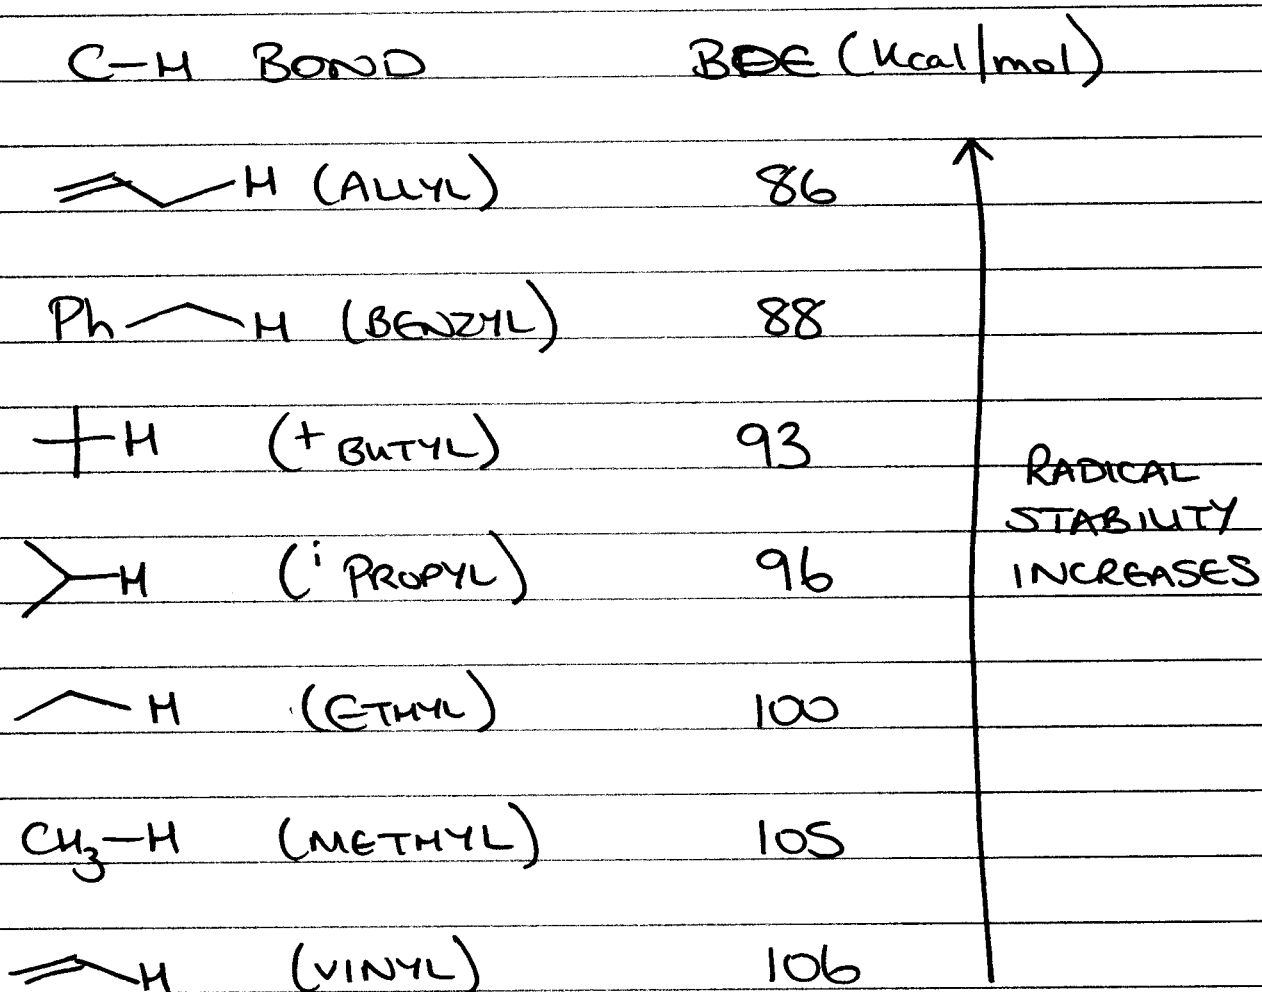 C-H BOND BDE (Kcal/mol)
H (ALLYL) 86
Ph H (BENZYL) 88
H (t BUTYL) 93
H (i PROPYL) 96
RADICAL
STABILITY
INCREASES
H (ETHYL) 100
CH3-H (METHYL) 105
H (VINYL) 106